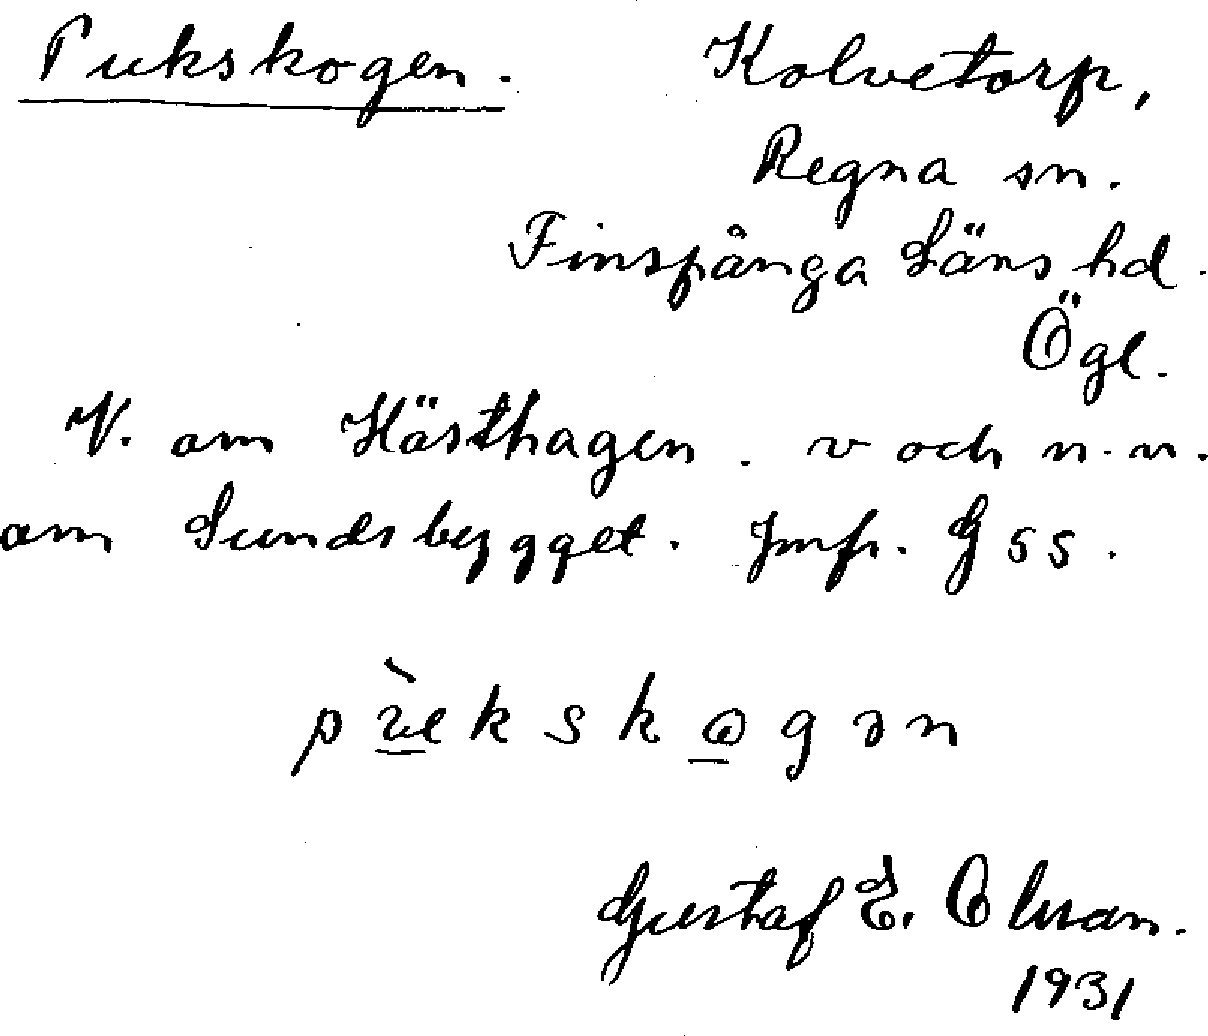 Pukskogen. Kolvetorp,
Regna sn.
Finspånga Läns hd.
Ögl.
V. om Hästhagen. v och n.v.
om Sundsbygget. Jmfr. G 55.
Gustaf E. Olsson.
1931